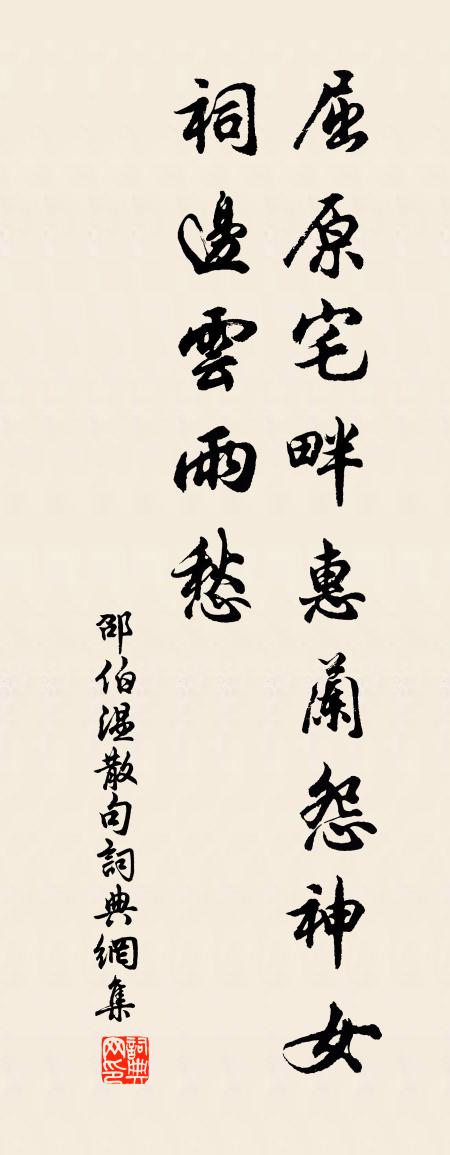 屈原宅畔惠蘭怨神女
祠邊雲雨愁
邵伯溫散句詞典網集
詞典网印